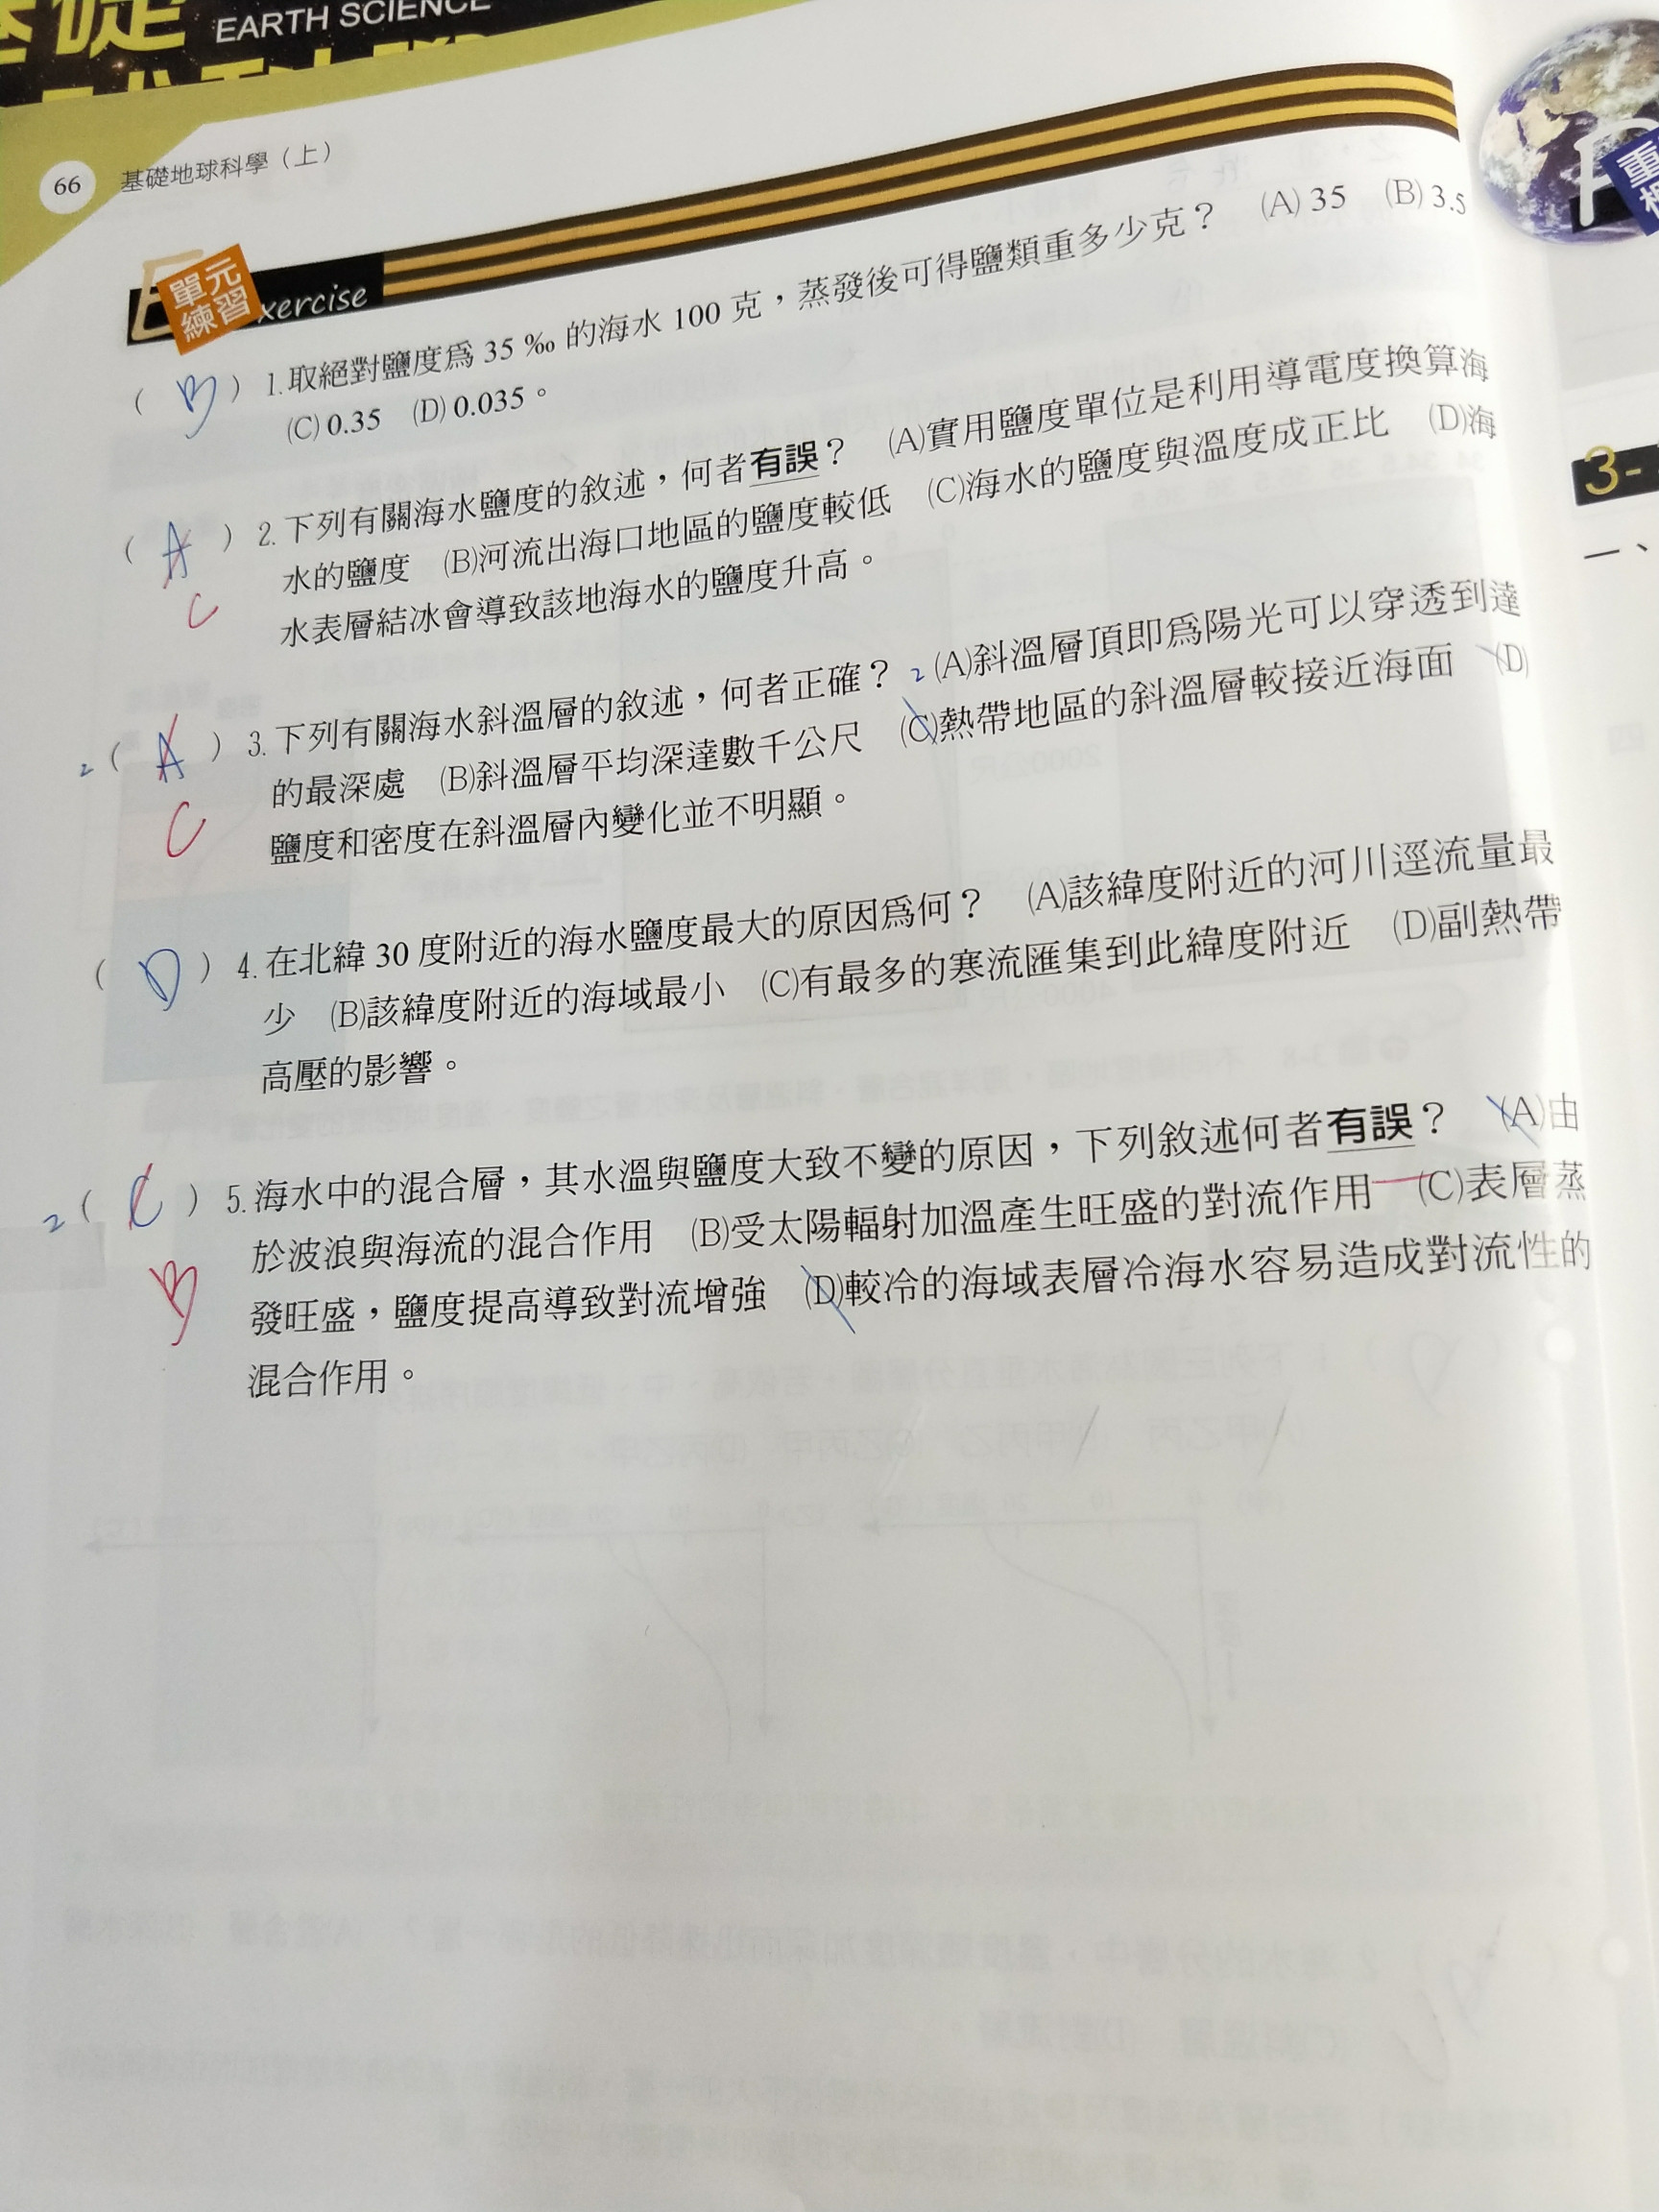 礎
EARTH SCIENCE
66 基礎地球科學（上）
單元
練習
Exercise
( B ) 1. 取絕對鹽度爲 35 ‰ 的海水 100 克，蒸發後可得鹽類重多少克？ (A) 35 (B) 3.5
(C) 0.35 (D) 0.035。
( A ) 2. 下列有關海水鹽度的敘述，何者有誤？ (A)實用鹽度單位是利用導電度換算海
C
水的鹽度 (B)河流出海口地區的鹽度較低 (C)海水的鹽度與溫度成正比 (D)海
水表層結冰會導致該地海水的鹽度升高。
2 ( A ) 3. 下列有關海水斜溫層的敘述，何者正確？ 2 (A)斜溫層頂即爲陽光可以穿透到達
C
的最深處 (B)斜溫層平均深達數千公尺 (C)熱帶地區的斜溫層較接近海面 (D)
鹽度和密度在斜溫層內變化並不明顯。
( D ) 4. 在北緯 30 度附近的海水鹽度最大的原因爲何？ (A)該緯度附近的河川逕流量最
少 (B)該緯度附近的海域最小 (C)有最多的寒流匯集到此緯度附近 (D)副熱帶
高壓的影響。
2 ( C ) 5. 海水中的混合層，其水溫與鹽度大致不變的原因，下列敘述何者有誤？ (A)由
B
於波浪與海流的混合作用 (B)受太陽輻射加溫產生旺盛的對流作用 (C)表層蒸
發旺盛，鹽度提高導致對流增強 (D)較冷的海域表層冷海水容易造成對流性的
混合作用。
重
3-
一、